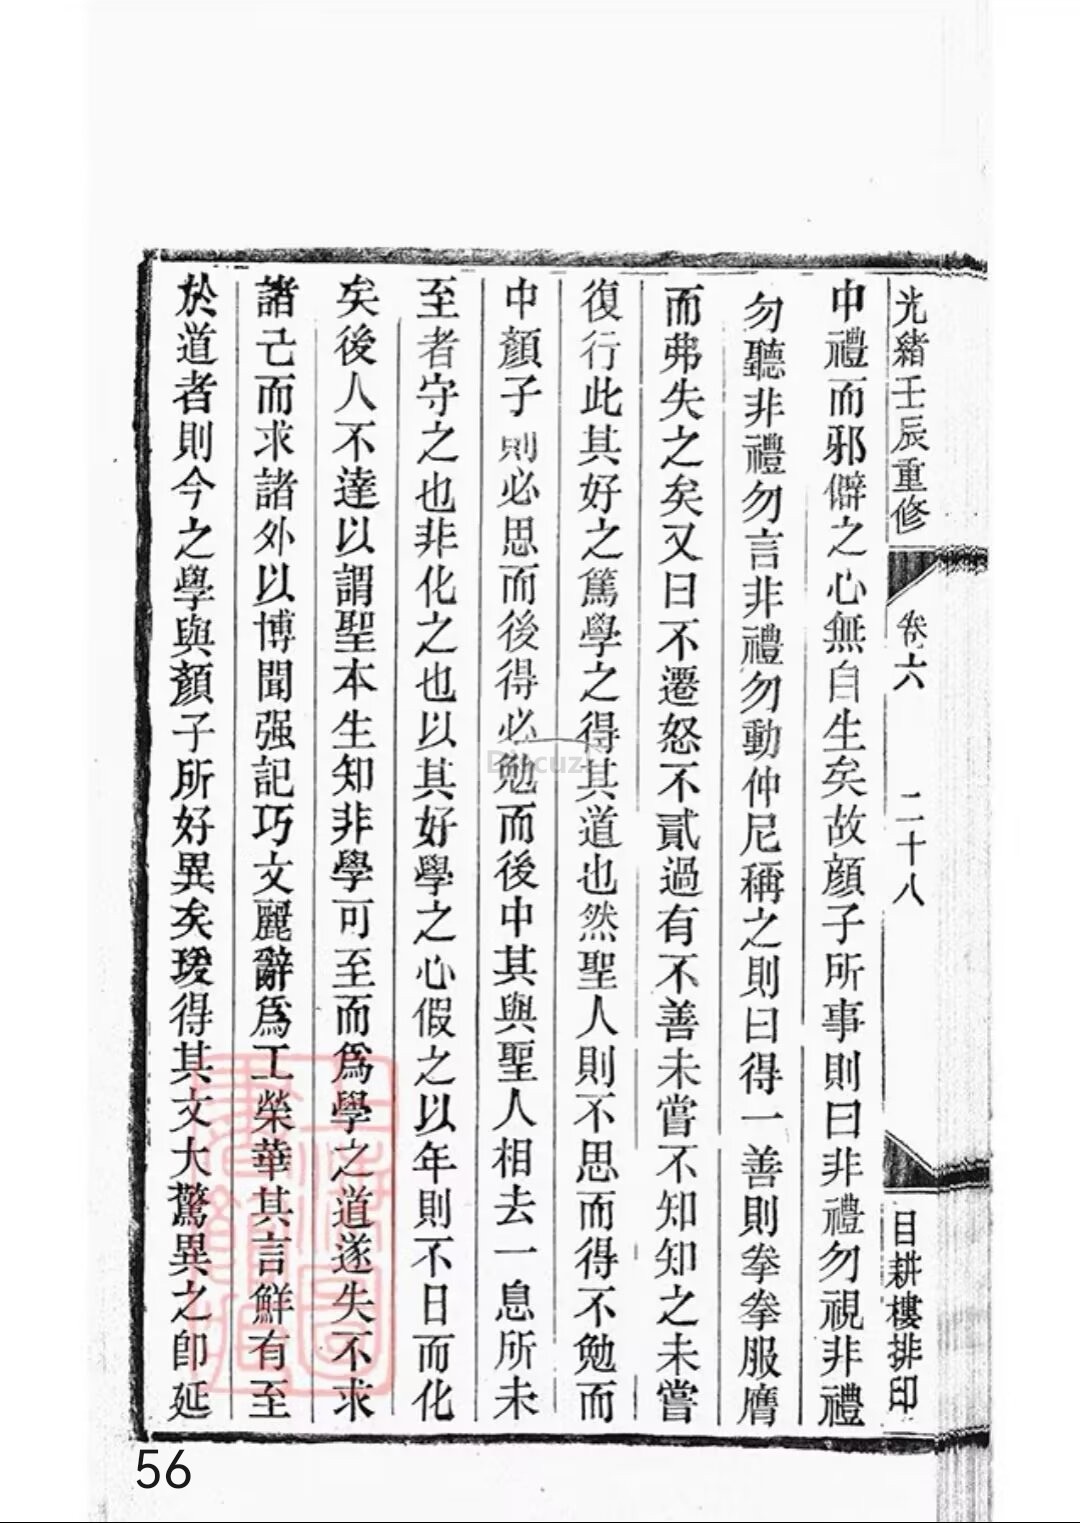 光緒壬辰重修 卷六 二十八 目耕樓排印
中禮而邪僻之心無自生矣故顔子所事則曰非禮勿視非禮
勿聽非禮勿言非禮勿動仲尼稱之則曰得一善則拳拳服膺
而弗失之矣又曰不遷怒不貳過有不善未嘗不知知之未嘗
復行此其好之篤學之得其道也然聖人則不思而得不勉而
中顏子則必思而後得必勉而後中其與聖人相去一息所未
至者守之也非化之也以其好學之心假之以年則不日而化
矣後人不達以謂聖本生知非學可至而爲學之道遂失不求
諸己而求諸外以博聞强記巧文麗辭爲工榮華其言鮮有至
於道者則今之學與顏子所好異矣瑗得其文大驚異之卽延
上海圖書館藏
Discuz!
56